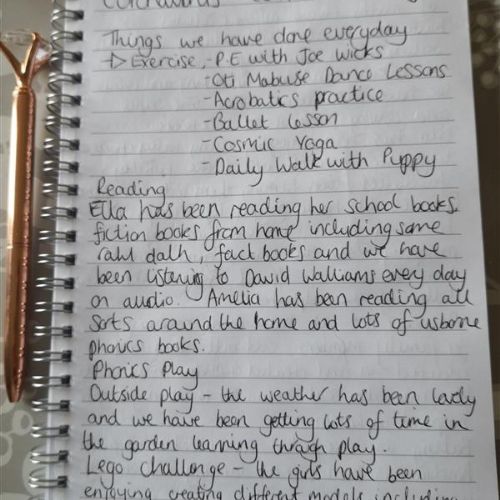 Things we have done everyday
▷ Exercise - P.E with Joe Wicks
- Oti Mabuse Dance Lessons
- Acrobatics practice
- Ballet lesson
- Cosmic Yoga
- Daily Walk with Puppy
Reading
Ella has been reading her school books,
fiction books from home including some
rahl dalh, fact books and we have
been listening to David Walliams every day
on audio. Amelia has been reading all
sorts around the home and lots of usborne
phonics books.
Phonics Play
Outside play - the weather has been lovely
and we have been getting lots of time in
the garden learning through play.
Lego challenge - the girls have been
enjoying creating different models including